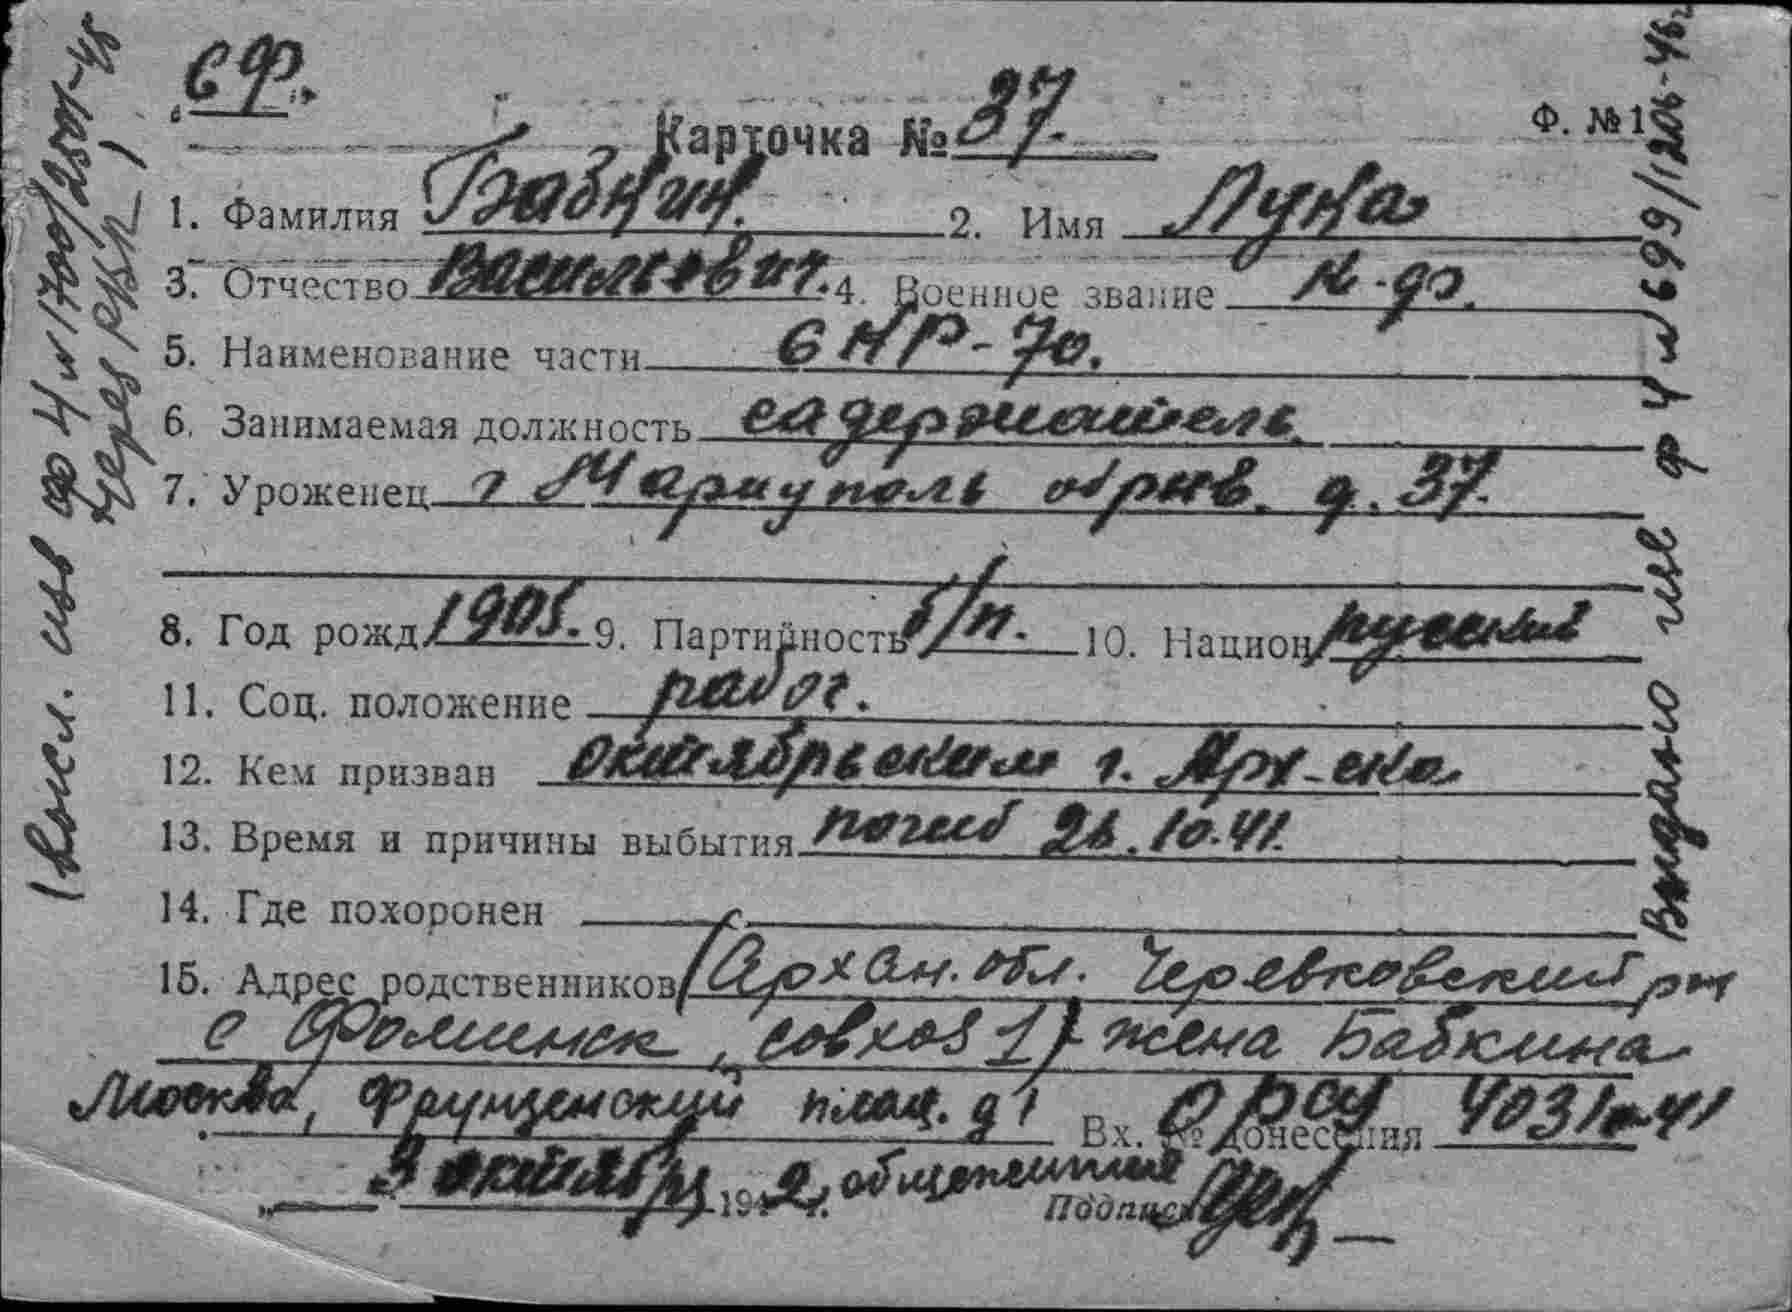 СФ.
Карточка № 37.
Ф. № 1
1. Фамилия Бабкин. 2. Имя Лука
3. Отчество Васильевич. 4. Военное звание к-фл.
5. Наименование части СКР-70.
6. Занимаемая должность содержатель
7. Уроженец г Мариуполь обрыв. д. 37.
8. Год рожд 1905. 9. Партийность б/п. 10. Национ русский
11. Соц. положение работ.
12. Кем призван октябрьским г. Арх-ска
13. Время и причины выбытия погиб 26.10.41.
14. Где похоронен
15. Адрес родственников (Архан. обл. Черевковский рн
с Фоминск, совхоз 1) жена Бабкина
Москва, Фрунзенский плац. д 1 Вх. № донесения 4031
3 октября 1942, общежитие Подпись
Выдано изв ф 4 № 699/1206-46г
Высл. изв ф 4 № 1700/2501-45
через РВК